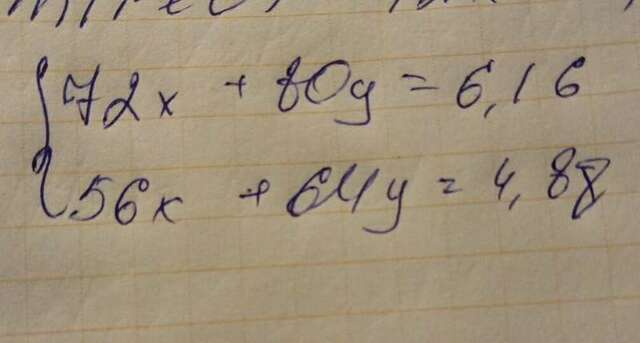 72x + 80y = 6,16
56x + 64y = 4,88